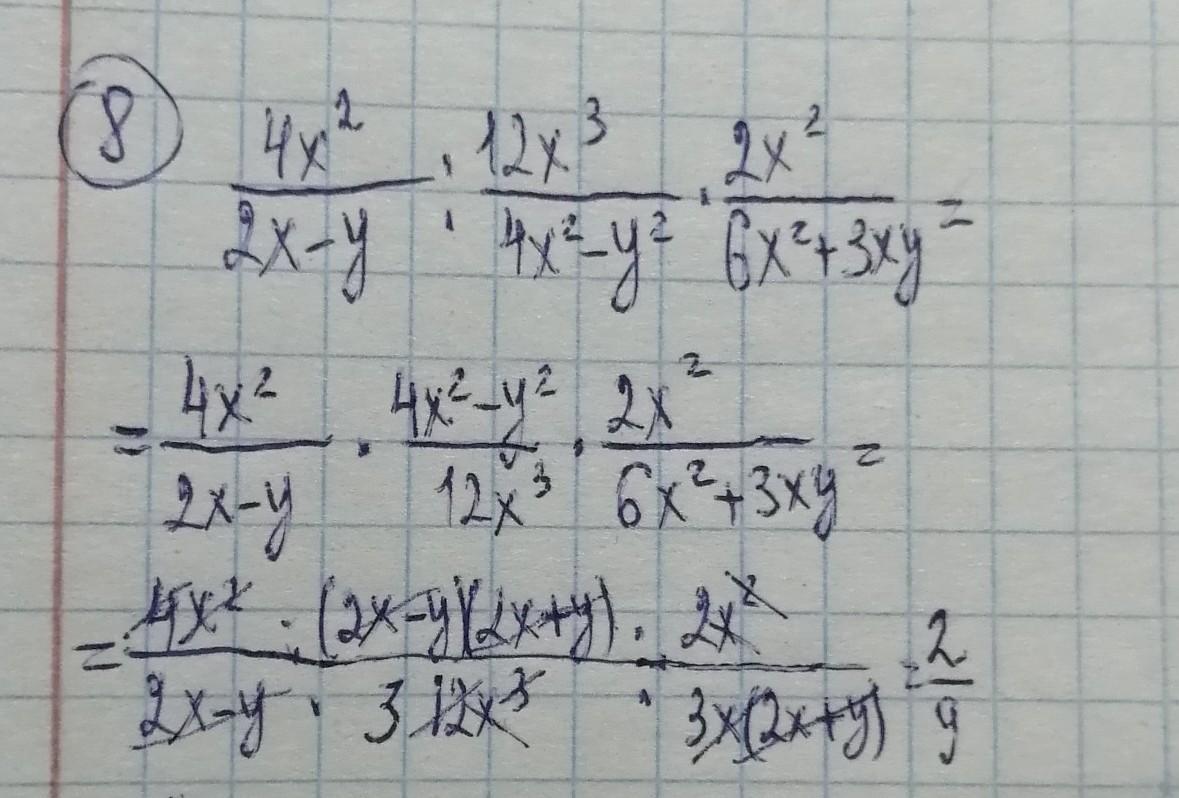 8 4x²/(2x-y) : 12x³/(4x²-y²) · 2x²/(6x²+3xy) =
= 4x²/(2x-y) · (4x²-y²)/12x³ · 2x²/(6x²+3xy) =
= (4x² · (2x-y)(2x+y) · 2x²)/(2x-y · 3 12x³ · 3x(2x+y)) = 2/9